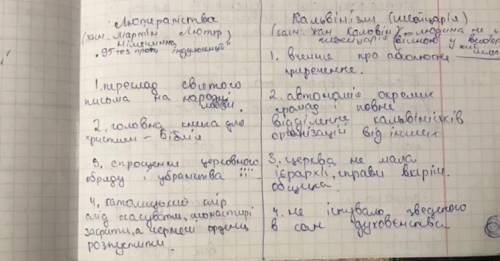 Лютеранство
(зас. Мартін Лютер)
Німеччина
"95 тез проти індульгенцій"
1. переклад святого
письма на народні
мови.
2. головна книга для
християн – Біблія
3. спрощення церковного
обряду і убранства !!!
4. католицький клір
слід скасувати, монастирі
закрити, а чернечі ордени
розпустити.
Кальвінізм (Швейцарія)
(зас. Жан Кальвін)
людина не є
1. вчення про абсолютне
приречення.
2. автономія окремих
громад і повне
відділення кальвіністських
організацій від інших
3. церква не мала
ієрархії, справи виріш.
община.
4. не існувало зведеного
в сан духовенства